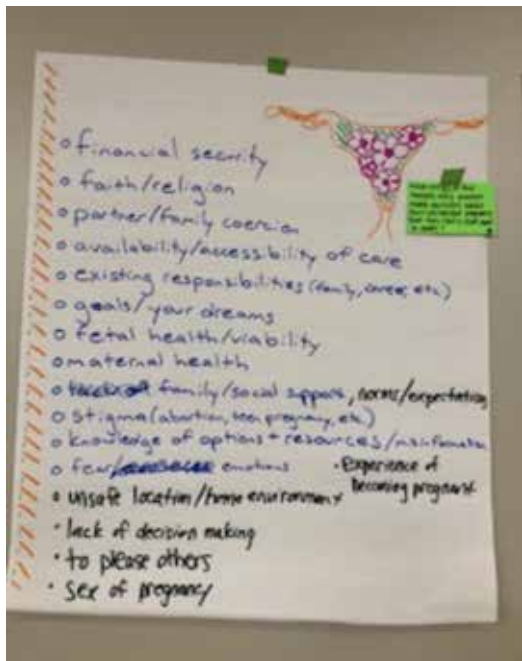 o financial security
o faith/religion
o partner/family coercion
o availability/accessibility of care
o existing responsibilities (family, career, etc.)
o goals/your dreams
o fetal health/viability
o maternal health
o family/social support, norms/expectations
o stigma (abortion, teen pregnancy, etc.)
o knowledge of options + resources/misinformation
o fear/ emotions
• Experience of
becoming pregnant
o unsafe location/home environment
• lack of decision making
• to please others
• Sex of pregnancy